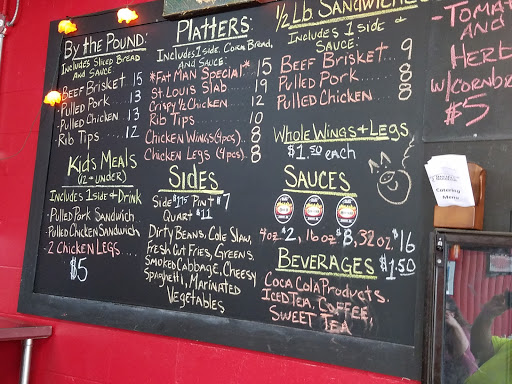 By the Pound:
Includes Sliced Bread
and Sauce
Beef Brisket 15
-Pulled Pork .... 13
-Pulled Chicken 13
-Rib Tips ..... 12
Kid's Meals
(12 + under)
Includes 1 side + Drink
-Pulled Pork Sandwich
-Pulled Chicken Sandwich
-2 Chicken Legs....
$5
Platters:
Includes 1 side, Corn Bread,
and Sauce:
*Fat Man Special* 15
St. Louis Slab..... 19
Crispy 1/2 Chicken 12
Rib Tips 10
Chicken Wings (4pcs).. 8
Chicken Legs (4pcs).. 8
1/2 Lb. Sandwiches
Includes 1 side +
Sauce:
Beef Brisket 9
Pulled Pork.... 8
Pulled Chicken.. 8
Whole Wings + Legs
$1.50 each
Sides
Pint $7
Quart $11
Dirty Beans, Cole Slaw,
Fresh Cut Fries, Greens
Smoked Cabbage, Cheesy
Spaghetti, Marinated
Vegetables
Sauces
4oz $2, 16oz $8, 32oz $16
Beverages $1.50
Coca Cola Products,
Iced Tea, Coffee,
Sweet Tea
-Tomato
and
Herb
w/Cornbr
$5
Catering
Menu